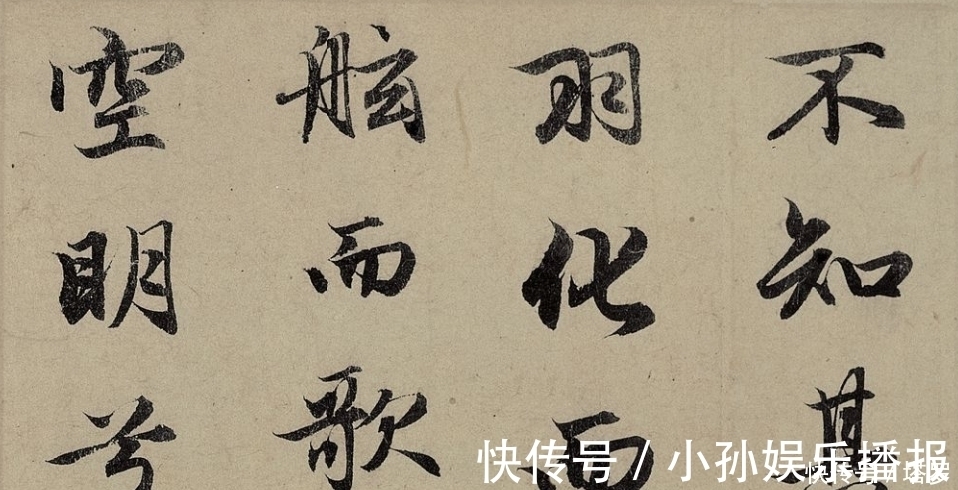 不知其
羽化而
舷而歌
空明兮
快传号 / 小孙娱乐播报